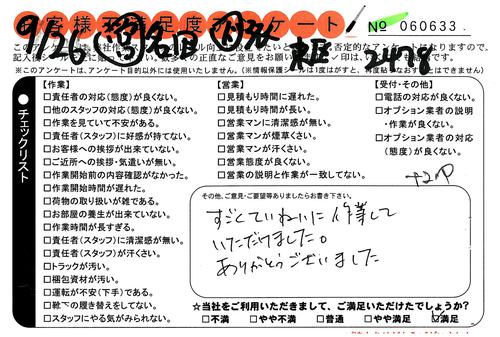 お客様不満足度アンケート
№ 060633
9/26
東區 2478
※このアンケートは、アンケート目的以外には使用いたしません。
チェックリスト
【作業】
□責任者の対応(態度)が良くない。
□他のスタッフの対応(態度)が良くない。
□作業を見ていて不安がある。
□責任者(スタッフ)に好感が持てない。
□お客様への挨拶が出来ていない。
□ご近所への挨拶・気遣いが無い。
□作業開始前の内容確認がなかった。
□作業開始時間が遅れた。
□荷物の取り扱いが雑である。
□お部屋の養生が出来ていない。
□作業時間が長すぎる。
□責任者(スタッフ)に清潔感が無い。
□責任者(スタッフ)が汗くさい。
□トラックが汚い。
□梱包資材が汚い。
□運転が不安(下手)である。
□靴下の履き替えをしてない。
□スタッフにやる気がみられない。
【営業】
□見積もり時間に遅れた。
□見積もり時間が長い。
□営業マンに清潔感が無い。
□営業マンが煙草くさい。
□営業マンが汗くさい。
□営業態度が良くない。
□営業の説明と作業が一致してない。
【受付・その他】
□電話の対応が良くない。
□オプション業者の説明・作業が良くない。
□オプション業者の対応(態度)が良くない。
その他、ご意見・ご要望等ありましたらお書き下さい。
すごくていねいに作業して
いただけました。
ありがとうございました
☆当社をご利用いただきまして、ご満足いただけたでしょうか?
□不満 □やや不満 □普通 □やや満足 ☑満足